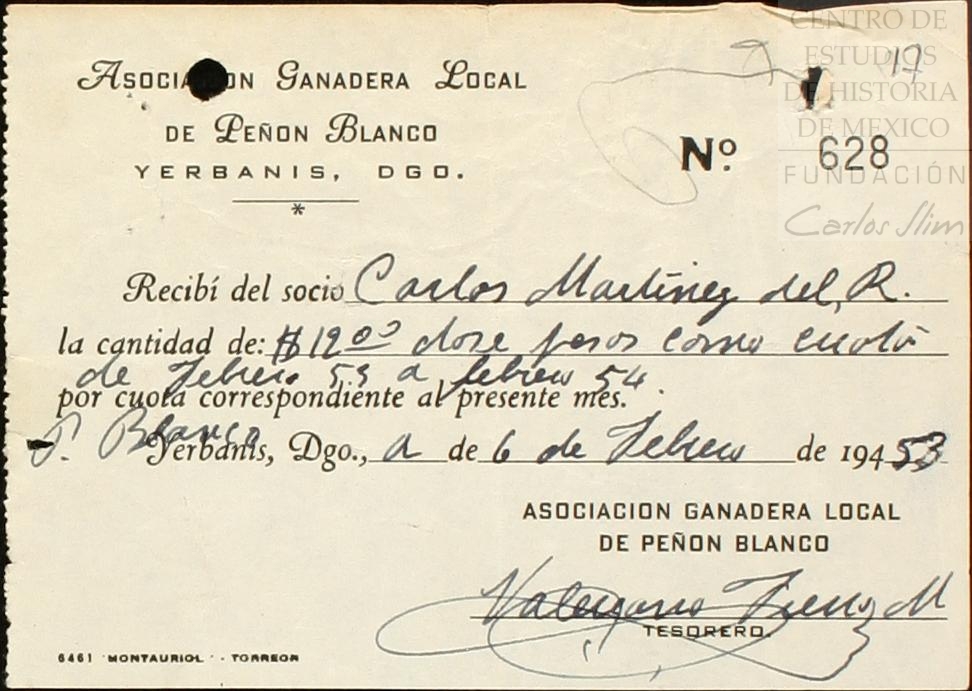 CENTRO DE
ESTUDIOS
DE HISTORIA
DE MEXICO
FUNDACIÓN
Carlos Slim
17
ASOCIACION GANADERA LOCAL
DE PEÑON BLANCO
YERBANIS, DGO.
*
Nº 628
Recibí del socio Carlos Martinez del R.
la cantidad de: $12.00 dose pesos como cuota
de Febrero 53 a febrero 54.
por cuota correspondiente al presente mes.
P. Blanco
Yerbanis, Dgo., a de 6 de Febrero de 194 53
ASOCIACION GANADERA LOCAL
DE PEÑON BLANCO
TESORERO.
6461 MONTAURIOL - TORREON